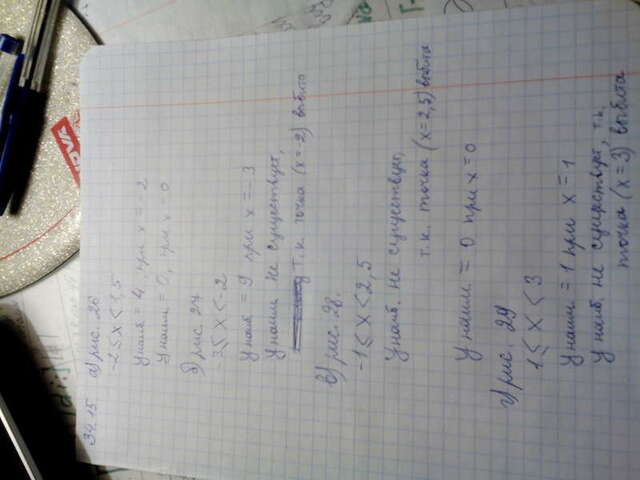 39.15 а) рис. 26
-2 ≤ x ≤ 1,5
y наиб = 4 при x = -2
y наим = 0, при x = 0
б) рис 27
-3 ≤ x < -2
y наиб = 9 при x = -3
y наим не существует,
т.к. точка (x = -2) выбита
в) рис. 28.
-1 ≤ x < 2,5
y наиб. не существует,
т.к. точка (x = 2,5) выбита
y наим = 0 при x = 0
г) рис. 29
1 ≤ x < 3
y наим = 1 при x = 1
y наиб. не существует, т.к.
точка (x = 3) выбита